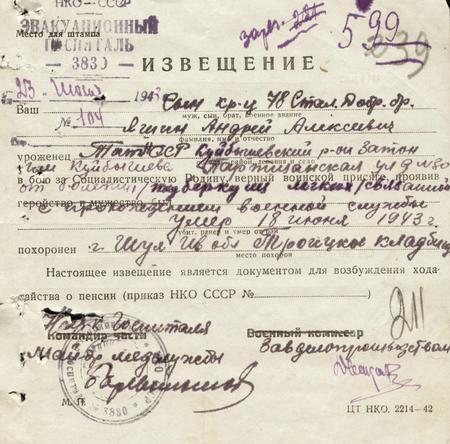 НКО – СССР
ЭВАКУАЦИОННЫЙ
Место для штампа
ГОСПИТАЛЬ
3830
599
339
ИЗВЕЩЕНИЕ
23 июня 1943
№ 104
Ваш сын кр-ц 78 Стал. Добр. бр.
муж, сын, брат, военное звание
Яшин Андрей Алексеевич
фамилия, имя и отчество
уроженец ТатАССР Куйбышевский р-он затон
область, район, деревня и село
им Куйбышева Партизанская ул д №80
в бою за Социалистическую Родину, верный воинской присяге, проявив
от болезни/туберкулез легких/связанной
геройство и мужество, был
с прохождением военной службы
умер 18 июня 1943 г
убит, ранен и умер от ран
похоронен г. Шуя Ив обл Троицкое кладбище
место похорон
Настоящее извещение является документом для возбуждения хода-
тайства о пенсии (приказ НКО СССР №
Нач-к Госпиталя
Командир части
Военный комиссар
Майор медслужбы
Завделопроизводством
211
3830
М. П.
ЦТ НКО. 2214–42